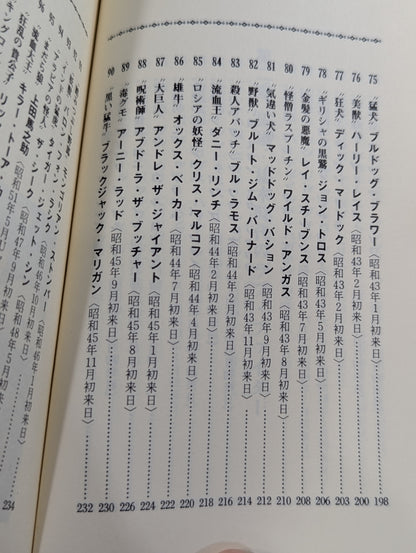 75 "猛犬" ブルドッグ・ブラワー〈昭和43年1月初来日〉……198
76 "美獣" ハーリー・レイス〈昭和43年2月初来日〉……200
77 "狂犬" ディック・マードック〈昭和43年2月初来日〉……203
78 "ギリシャの黒鷲" ジョン・トロス〈昭和43年5月初来日〉……206
79 "金髪の悪魔" レイ・スチーブンス〈昭和43年7月初来日〉……208
80 "怪僧ラスプーチン" ワイルド・アンガス〈昭和43年8月初来日〉……210
81 "気違い犬" マッドドッグ・バション〈昭和43年9月初来日〉……212
82 "野獣" ブルート・ジム・バーナード〈昭和43年11月初来日〉……214
83 "殺人アパッチ" ブル・ラモス〈昭和44年2月初来日〉……216
84 "流血王" ダニー・リンチ〈昭和44年2月初来日〉……218
85 "ロシアの妖怪" クリス・マルコフ〈昭和44年4月初来日〉……220
86 "雄牛" オックス・ベーカー〈昭和44年7月初来日〉……222
87 "大巨人" アンドレ・ザ・ジャイアント〈昭和45年1月初来日〉……224
88 "呪術師" アブドーラ・ザ・ブッチャー〈昭和45年8月初来日〉……226
89 "毒グモ" アーニー・ラッド〈昭和45年9月初来日〉……230
90 "黒い猛牛" ブラックジャック・マリガン〈昭和45年11月初来日〉……232
ストンパー〈昭和46年1月初来日〉……234
タイガー・ジェット・シン
ザ・シーク
上田馬之助
キラー・トーア・カ